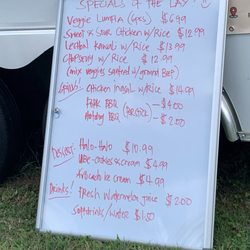 SPECIALS OF THE DAY!
Veggie Lumpia (4pcs) $6.99
Sweet & Sour Chicken w/Rice $12.99
Lechon Kawali w/Rice $13.99
Chopsuey w/Rice $12.99
(mix veggies sauteed w/ground Beef)
GRILL! Chicken Inasal w/Rice $14.99
Pork BBQ $4.00
Hotdog BBQ (PER STICK) $2.50
Dessert: Halo-Halo $10.99
Ube-cookies & cream $4.99
Avocado ice cream $4.99
Drinks! Fresh Watermelon juice $2.00
Softdrinks/water $1.50